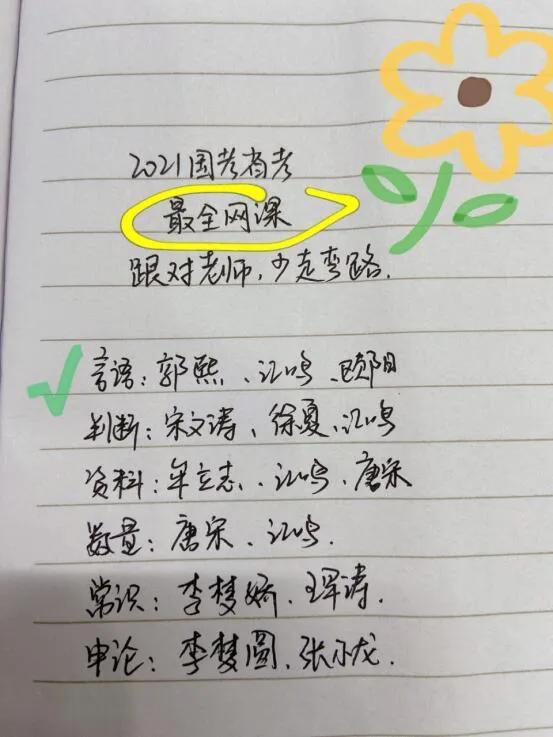 2021国考省考
最全网课
跟对老师,少走弯路.
言语:郭熙、江鸣、欧阳
判断:宋文涛、徐夏、江鸣
资料:牟立志、江鸣、唐宋
数量:唐宋、江鸣.
常识:李梦娇、王军涛.
申论:李梦圆、张小龙.